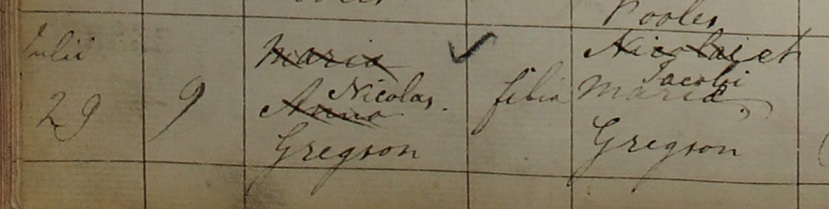 Pooles
Julii ~~Maria~~ ✓ ~~Nicolai~~ et
Nicolas. Jacobi
29 9 ~~Anna~~ filia Maria
Gregson Gregson